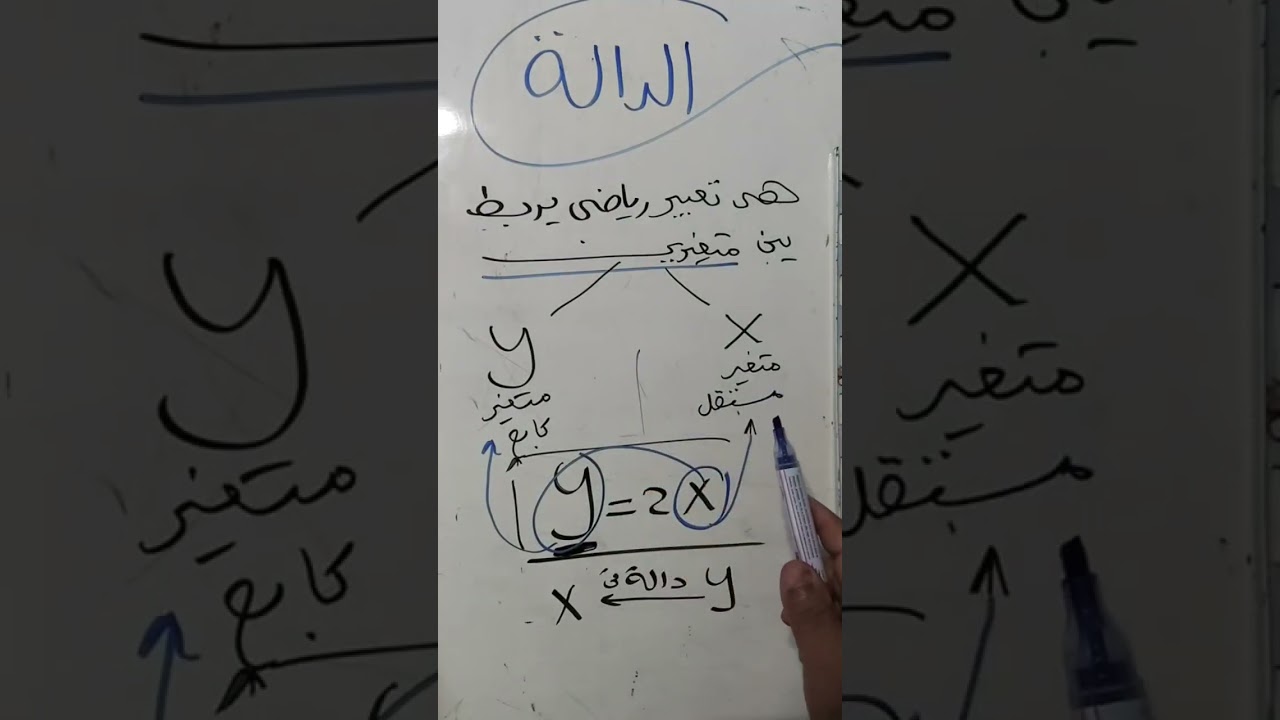 الدالة
هى تعبير رياضى يربط
بين متغيرين
y
x
متغير
متغير
مستقل
تابع
y = 2x
y دالة في x